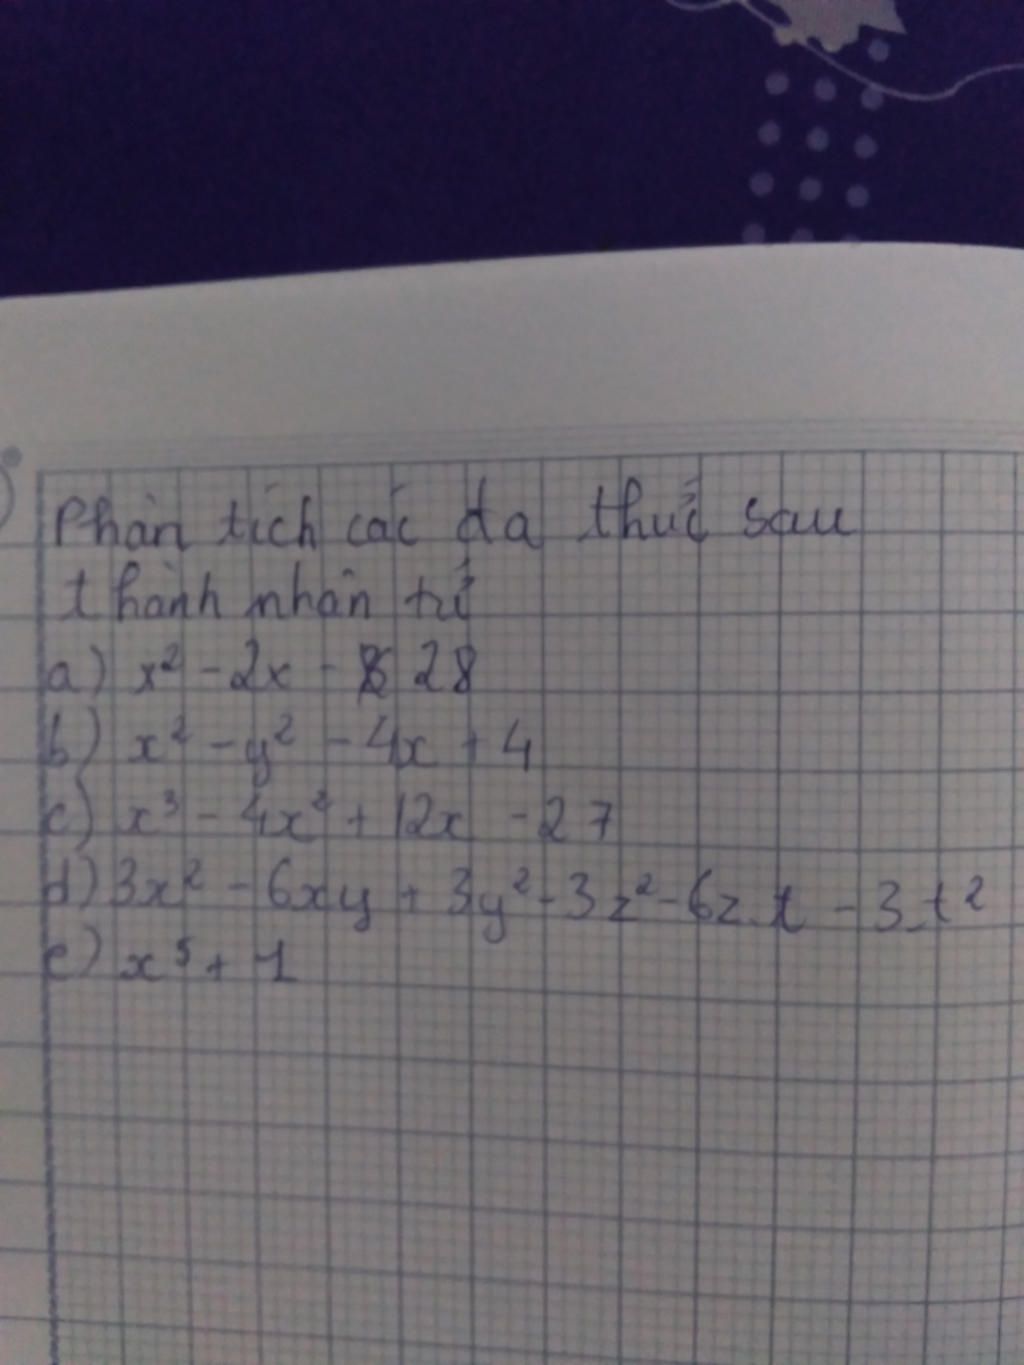 Phân tích các đa thức sau
thành nhân tử
a) x² - 2x - 28
b) x² - y² - 4x + 4
c) x³ - 4x² + 12x - 27
d) 3x² - 6xy + 3y² - 3z² - 6z.t - 3.t²
e) x⁵ + 1